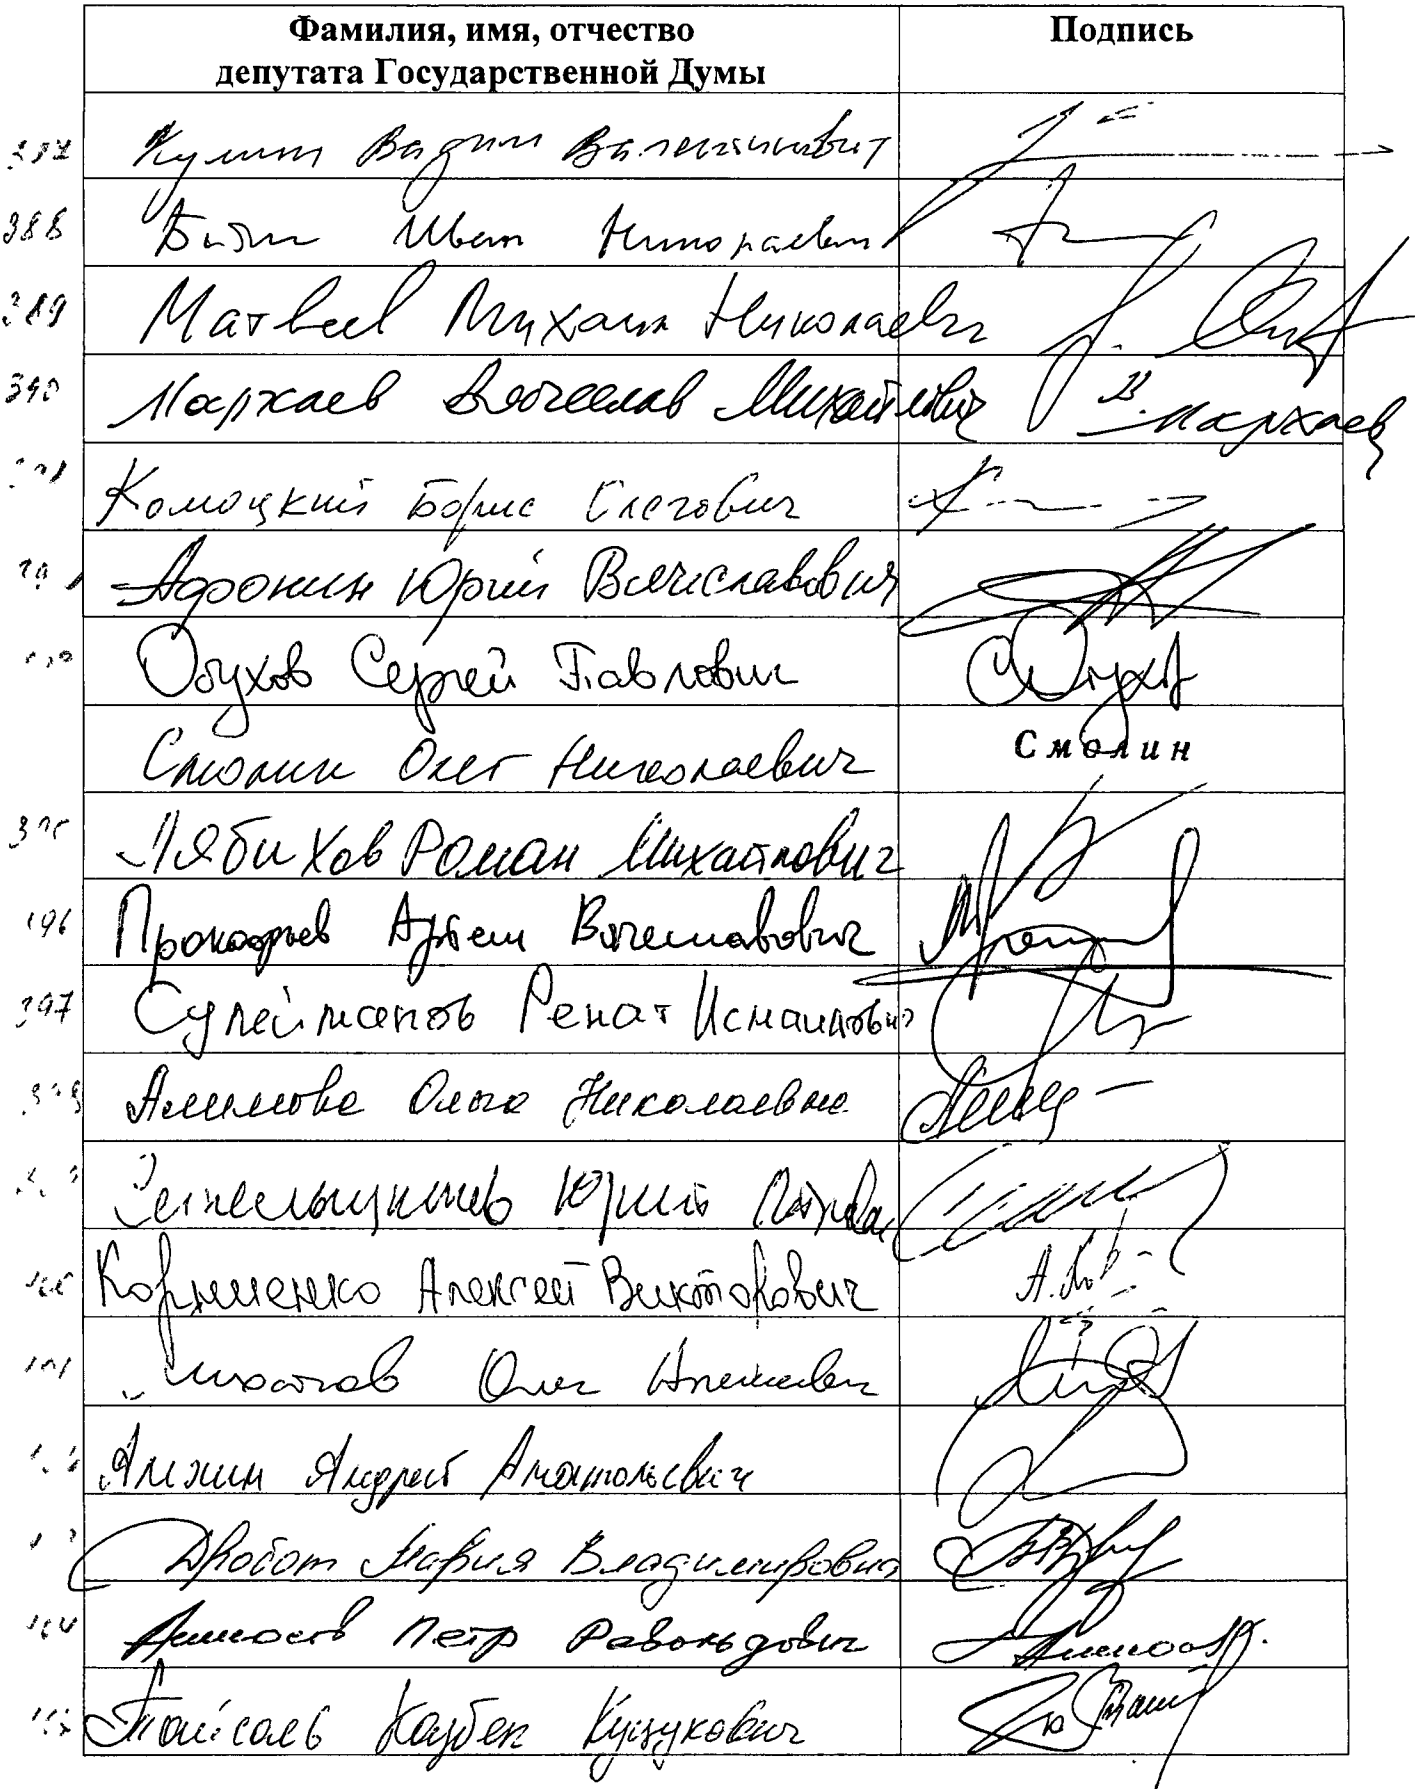 Фамилия, имя, отчество
депутата Государственной Думы
Подпись
387 Кумин Вадим Валентинович
388 Бабич Иван Николаевич
389 Матвеев Михаил Николаевич
390 Мархаев Вячеслав Михайлович В. Мархаев
Комоцкий Борис Олегович
Афонин Юрий Вячеславович
Обухов Сергей Павлович СОбухов
Смолин Олег Николаевич Смолин
395 Лябихов Роман Михайлович
396 Прокофьев Артем Вячеславович
397 Сулейманов Ренат Исмаилович
Алимова Ольга Николаевна
Синельщиков Юрий Петрович
Корниенко Алексей Викторович
Михайлов Олег Алексеевич
Алехин Андрей Анатольевич
Дробот Мария Владимировна
Аммосов Петр Револьдович
Тайсаев Казбек Куцукович